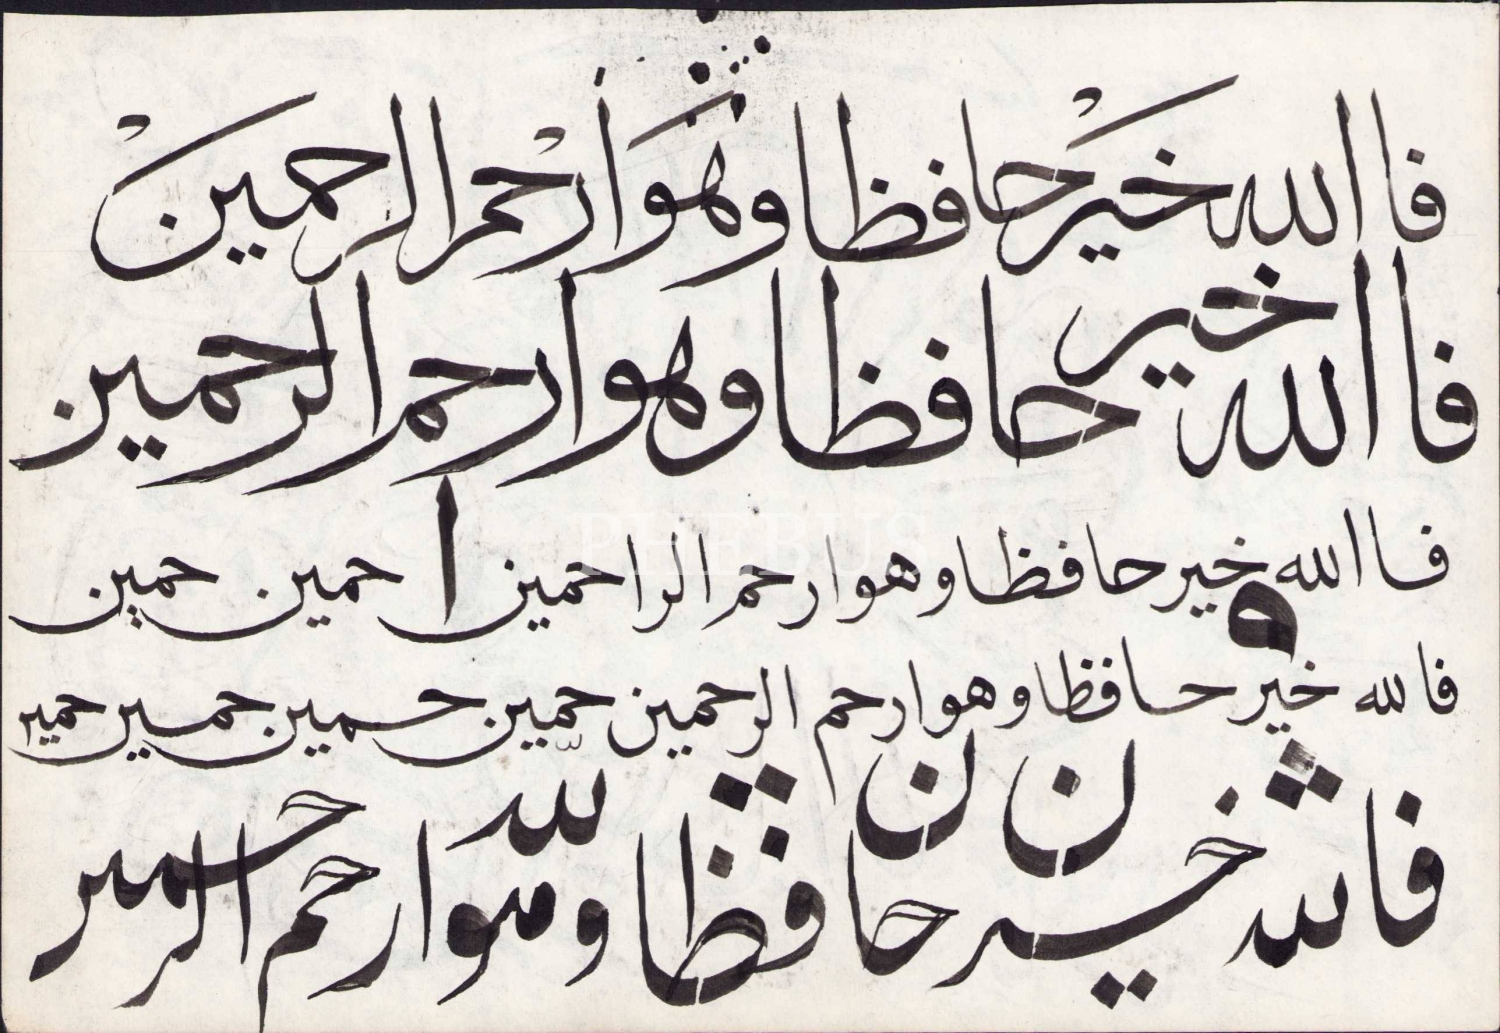 فا الله خير حافظا وهوا رحم الرحمين
فا الله خير حافظا وهوا رحم الرحمين
PHEBUS
فا الله خير حافظا وهوا رحم الراحمين ا حمين حمين
و
فالله خير حافظا وهوا رحم الرحمين حمين حمين حمين
ن ن لله
فالله خير حافظا وهوا رحم